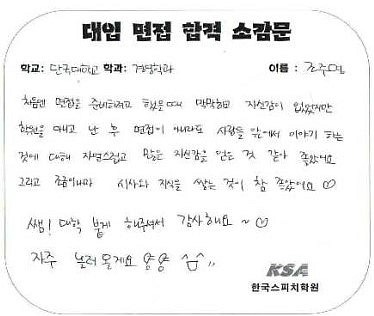 대입 면접 합격 소감문
학교: 단국대학교 학과: 경영학과 이름: 조주연
처음엔 면접을 준비하려고 했을때 막막하고 자신감이 없었지만
학원을 다니고 난 후 면접이 아니라도 사람들 앞에서 이야기 하는
것에 대해 자연스럽고 많은 자신감을 얻는 것 같아 좋았어요
그리고 조금이나마 시사와 지식을 쌓는 것이 참 좋았어요 ♡
쌤! 대학 붙게 해주셔서 감사해요 ~ ♡
자주 놀러 올게요
KSA
한국스피치학원